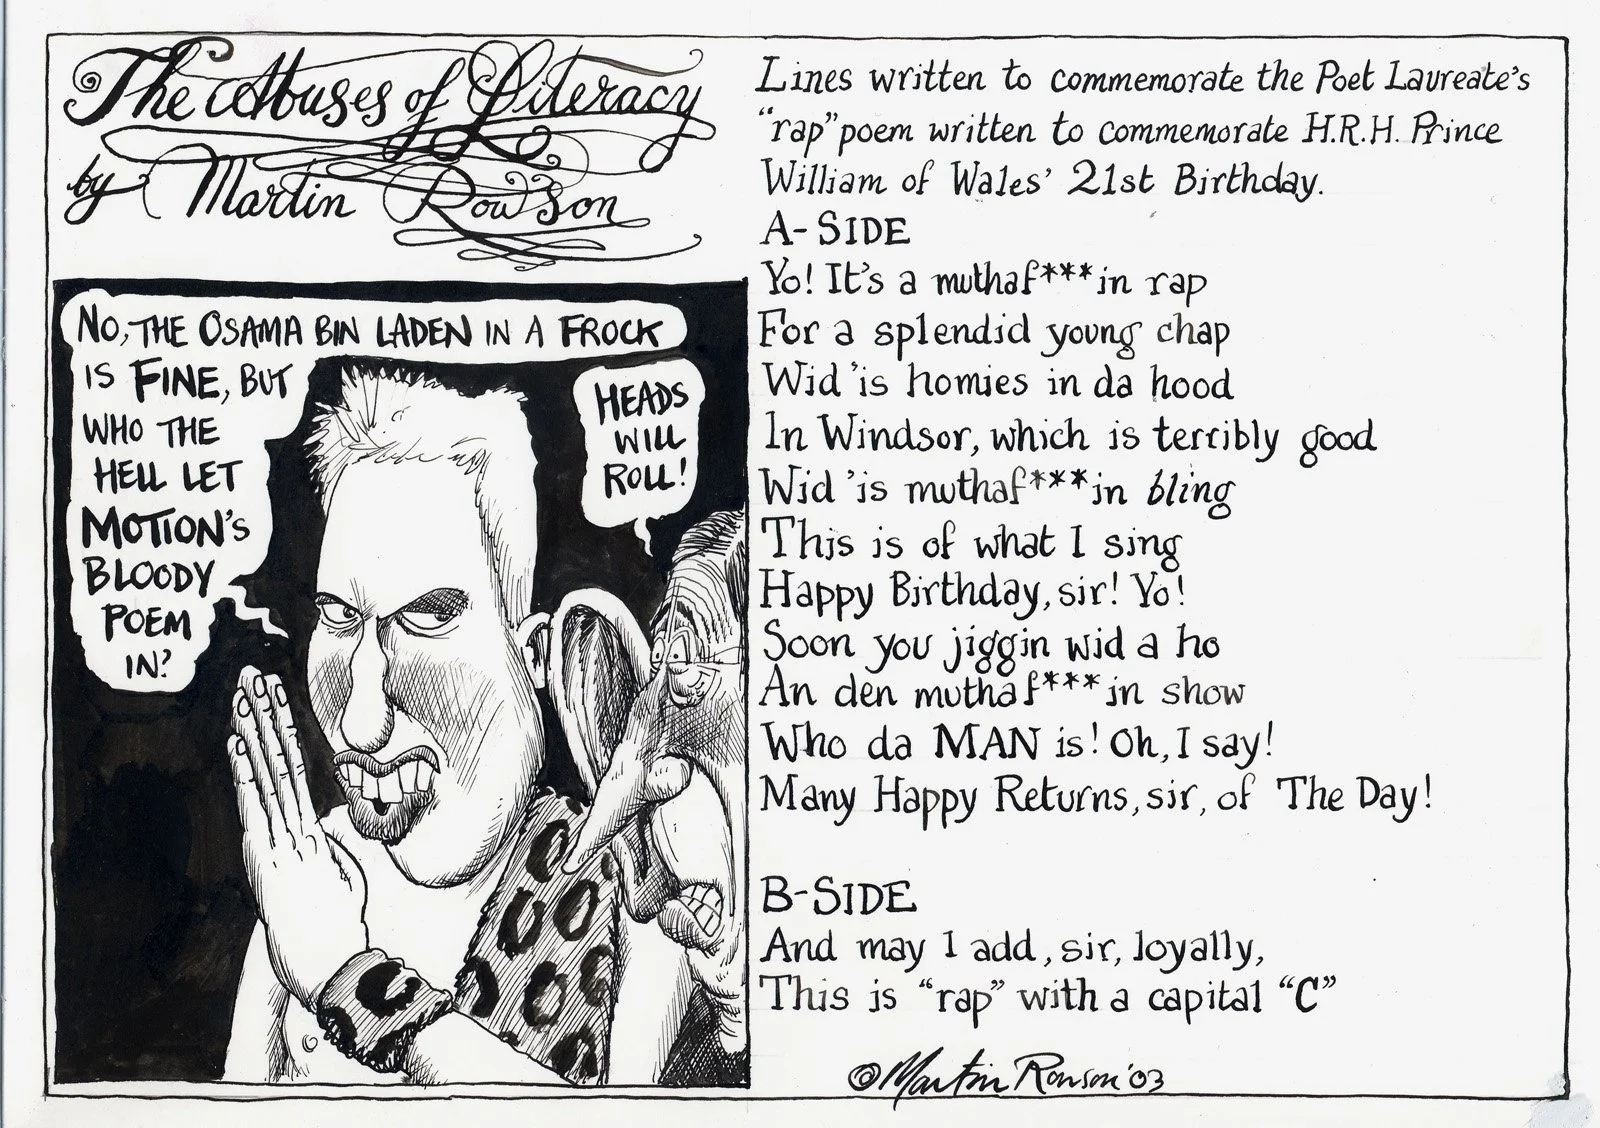 The Abuses of Literacy
by Martin Rowson
NO, THE OSAMA BIN LADEN IN A FROCK
IS FINE, BUT
WHO THE
HELL LET
MOTION'S
BLOODY
POEM
IN?
HEADS
WILL
ROLL!
Lines written to commemorate the Poet Laureate's
"rap" poem written to commemorate H.R.H. Prince
William of Wales' 21st Birthday.
A-SIDE
Yo! It's a muthaf***in rap
For a splendid young chap
Wid 'is homies in da hood
In Windsor, which is terribly good
Wid 'is muthaf***in bling
This is of what I sing
Happy Birthday, sir! Yo!
Soon you jiggin wid a ho
An den muthaf***in show
Who da MAN is! Oh, I say!
Many Happy Returns, sir, of The Day!
B-SIDE
And may I add, sir, loyally,
This is "rap" with a capital "C"
© Martin Rowson '03